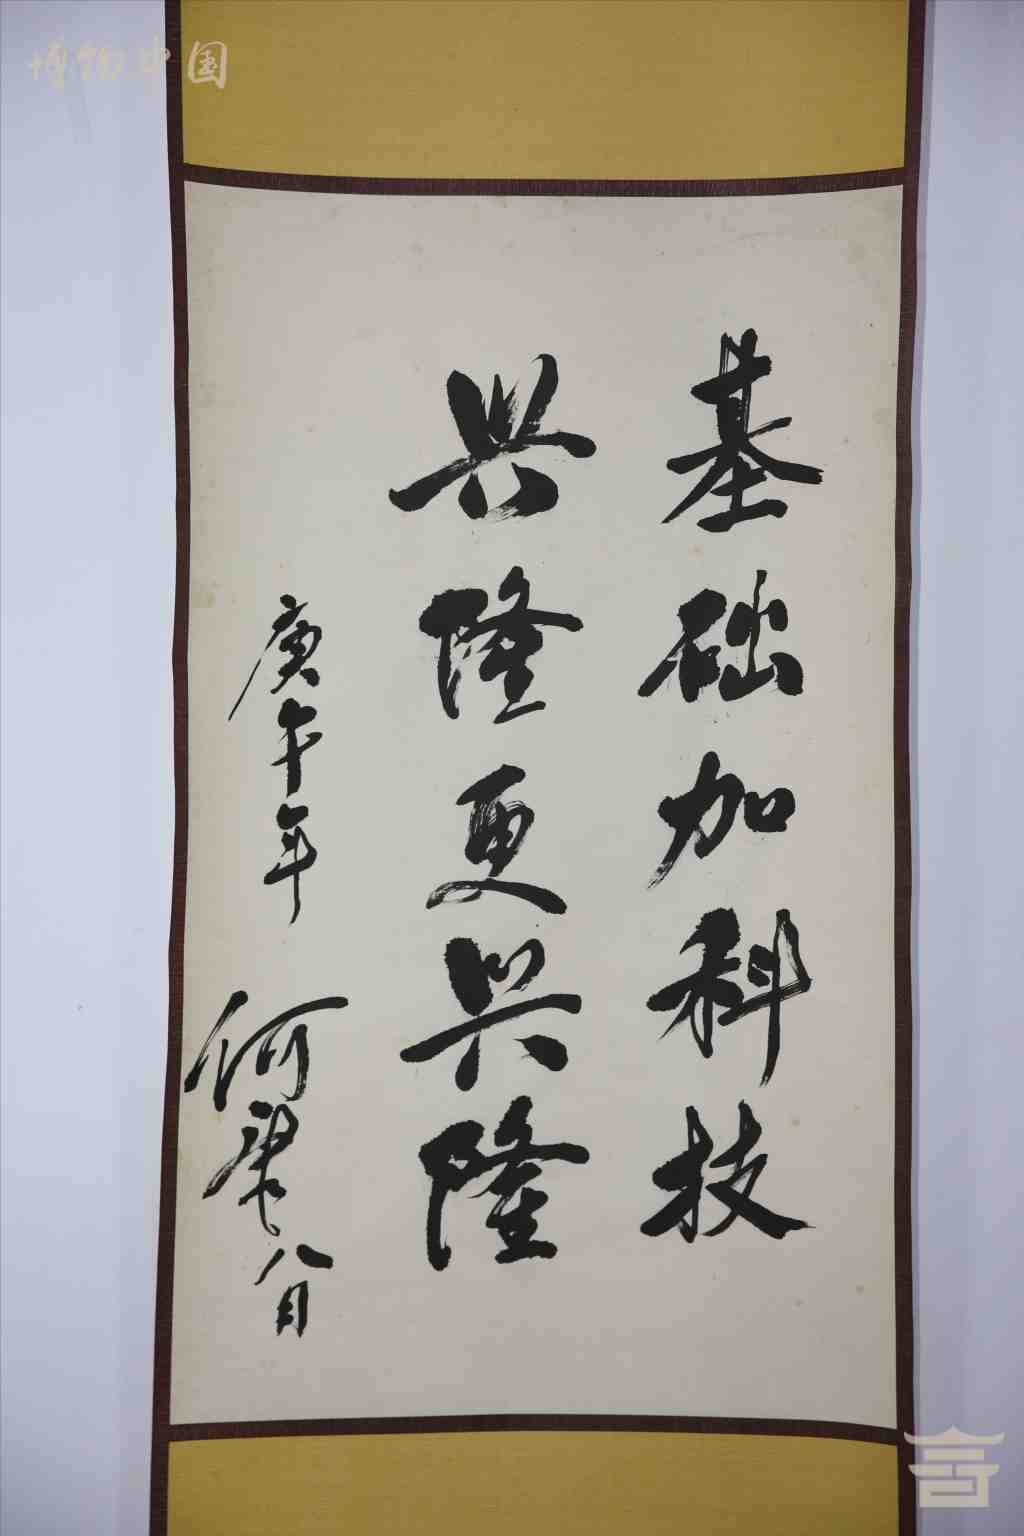 基础加科技
兴隆更兴隆
庚午年 何康 八月
博物中国